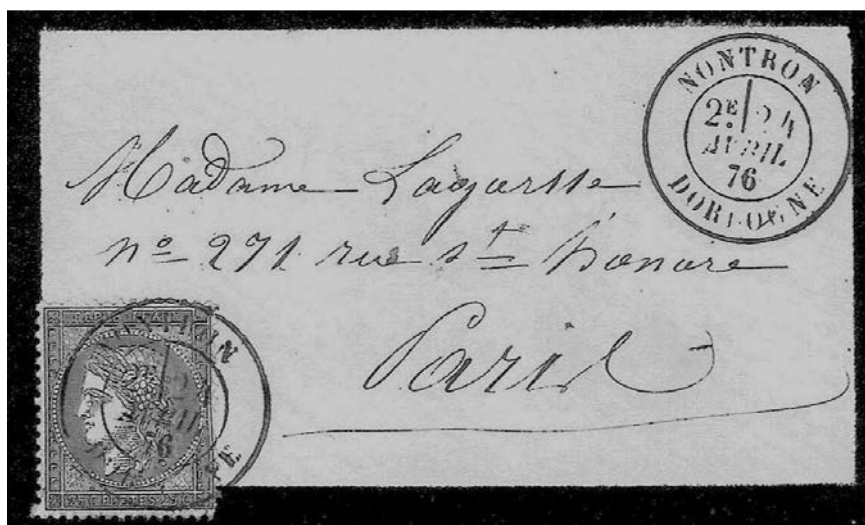 NONTRON
2E 24
AVRIL
76
DORDOGNE
Madame Lagarsse
no 271 rue st honore
Paris
REPUB FRANC
76
25 C POSTES 25 C